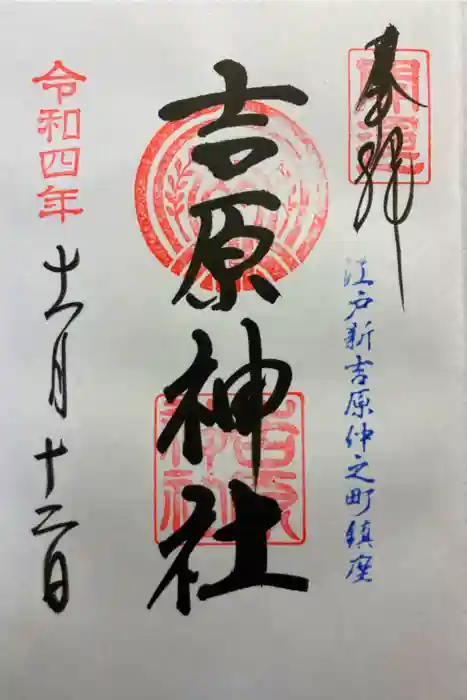 奉拝
開運
江戸新吉原仲之町鎮座
吉原神社
吉原神社
令和四年
十一月十二日